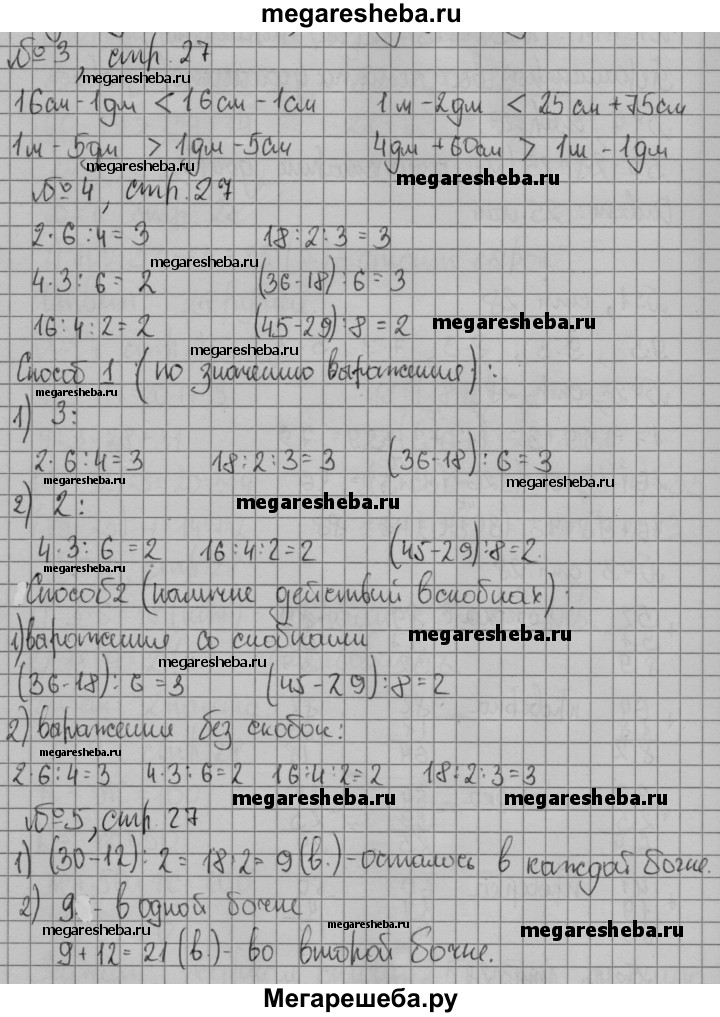 megaresheba.ru
№3, стр. 27
megaresheba.ru
16см - 1дм < 16см - 1см 1м - 2дм < 25см + 75см
1м - 5дм > 1дм - 5см 4дм + 60см > 1м - 1дм
megaresheba.ru megaresheba.ru
№4, стр. 27
2·6:4=3 18:2:3=3
megaresheba.ru
4·3:6=2 (36-18):6=3
16:4:2=2 (45-29):8=2 megaresheba.ru
megaresheba.ru
Способ 1 (по значению выражения):
megaresheba.ru
1) 3:
2·6:4=3 18:2:3=3 (36-18):6=3
megaresheba.ru megaresheba.ru
2) 2: megaresheba.ru
4·3:6=2 16:4:2=2 (45-29):8=2
megaresheba.ru
Способ 2 (наличие действий в скобках):
1) варожения со скобками megaresheba.ru
megaresheba.ru
(36-18):6=3 (45-29):8=2
2) выражения без скобок:
megaresheba.ru
2·6:4=3 4·3:6=2 16:4:2=2 18:2:3=3
megaresheba.ru megaresheba.ru
№5, стр. 27
1) (30-12):2=18:2=9(в.)-осталось в каждой бочке.
2) 9 - в одной бочке
megaresheba.ru megaresheba.ru megaresheba.ru
9+12=21(в.)- во второй бочке.
Мегарешеба.ру